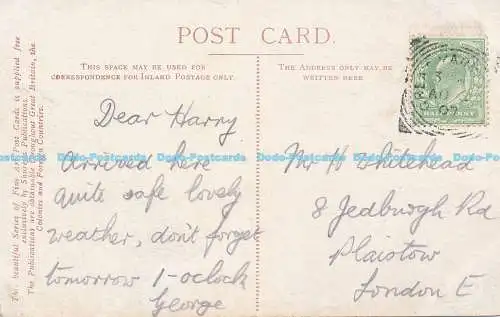 POST CARD.
THIS SPACE MAY BE USED FOR
CORRESPONDENCE FOR INLAND POSTAGE ONLY.
THE ADDRESS ONLY MAY BE
WRITTEN HERE
Dear Harry
Arrived here
quite safe lovely
weather, don't forget
tomorrow 1-oclock
George
Mr H Whitehead
8 Jedburgh Rd
Plaistow
London E
This beautiful Series of Fine Art Post Cards is supplied free
exclusively by Shurey's Publications.
The Publications are obtainable throughout Great Britain, the
Colonies and Foreign Countries.
HALFPENNY
AU
07
Dodo-Postcards